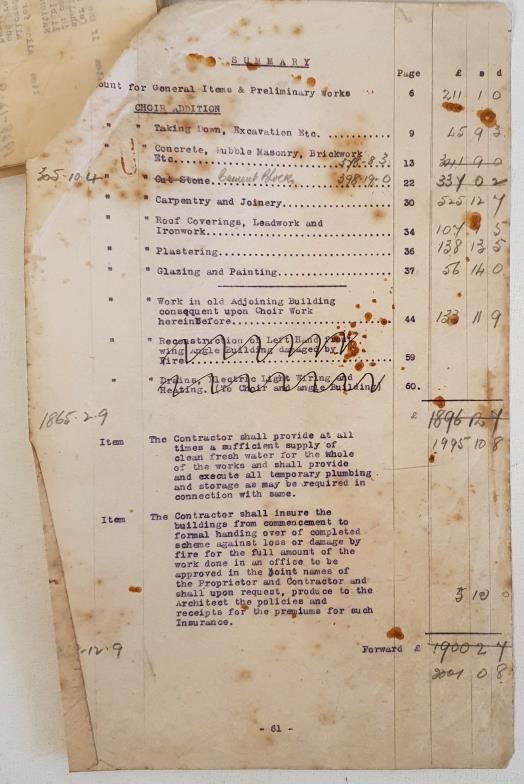 SUMMARY
Page £ s d
ount for General Items & Preliminary Works 6 211 1 0
CHOIR ADDITION
" " Taking Down, Excavation Etc. ........... 9 45 9 3
" " Concrete, Rubble Masonry, Brickwork
Etc. 398.8.3. 13 341 9 0
305-10-4 " " Cut Stone Cement Block 398.19.0 22 337 0 2
" " Carpentry and Joinery................... 30 525 12 7
" " Roof Coverings, Leadwork and
Ironwork................................ 34 107 9 5
" " Plastering.............................. 36 138 13 5
" " Glazing and Painting.................... 37 56 14 0
" " Work in old Adjoining Building
consequent upon Choir Work
hereinBefore............................ 44 133 11 9
" " Reconstruction Left Hand
wing angle Building damaged by
Fire.................................... 59
" " Drains, Electric Light Wiring and
Heating. (To Choir and angle Building) 60.
1865-2-9 £ 1896 12 7
1995 10 8
Item The Contractor shall provide at all
times a sufficient supply of
clean fresh water for the whole
of the works and shall provide
and execute all temporary plumbing
and storage as may be required in
connection with same.
Item The Contractor shall insure the
buildings from commencement to
formal handing over of completed
scheme against loss or damage by
fire for the full amount of the
work done in an office to be
approved in the joint names of
the Proprietor and Contractor and
shall upon request, produce to the
Architect the policies and
receipts for the premiums for such
Insurance.
5 10 0
-12-9 Forward £ 1900 2 7
2001 0 8
- 61 -